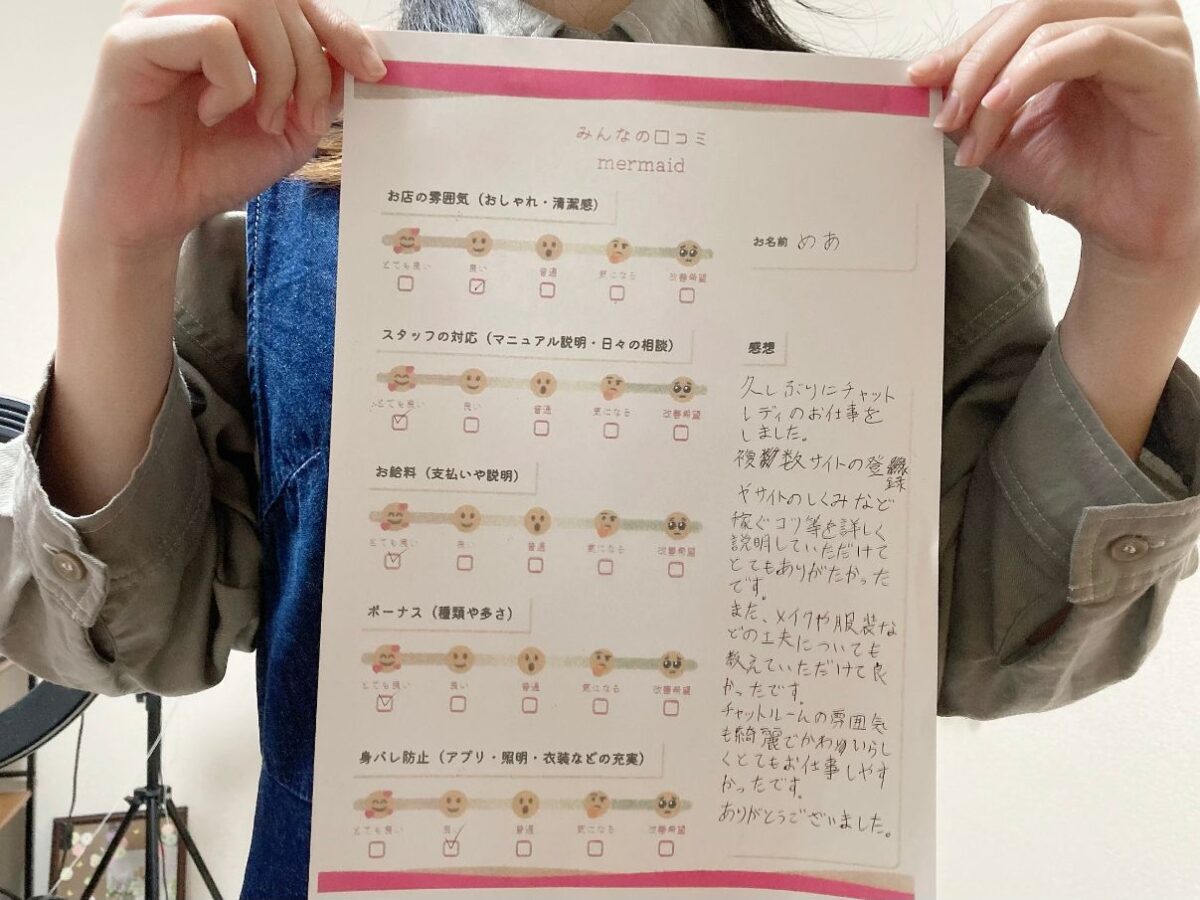 みんなの口コミ
mermaid
お店の雰囲気（おしゃれ・清潔感）
とても良い 良い 普通 気になる 改善希望
スタッフの対応（マニュアル説明・日々の相談）
とても良い 良い 普通 気になる 改善希望
お給料（支払いや説明）
とても良い 良い 普通 気になる 改善希望
ボーナス（種類や多さ）
とても良い 良い 普通 気になる 改善希望
身バレ防止（アプリ・照明・衣装などの充実）
とても良い 良い 普通 気になる 改善希望
お名前 めあ
感想
久しぶりにチャット
レディのお仕事を
しました。
複数サイトの登録
やサイトのしくみなど
稼ぐコツ等を詳しく
説明していただけて
とてもありがたかった
です。
また、メイクや服装な
どの工夫についても
教えていただけて良
かったです。
チャットルームの雰囲気
も綺麗でかわいらし
くとてもお仕事しやす
かったです。
ありがとうございました。